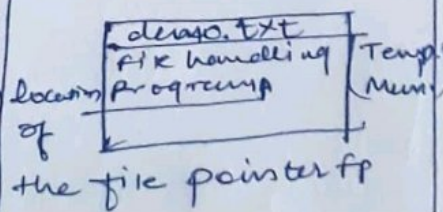 demo.txt
file handling
Programs
Temp.
Mem
location
of
the file pointer fp